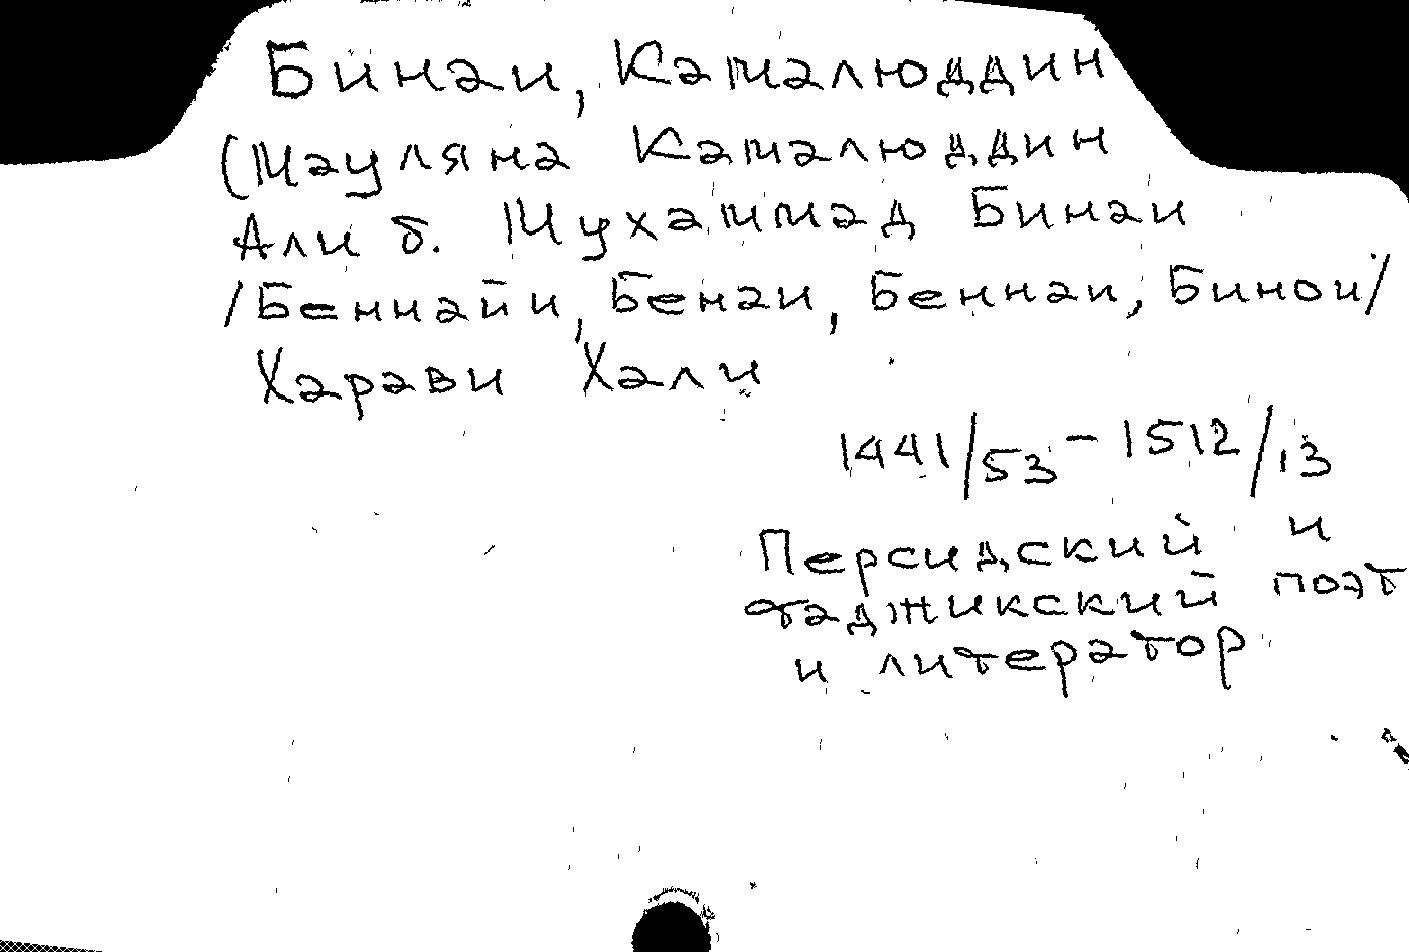 Бинаи, Камалюддин
(Мауляна Камалюддин
Али б. Мухаммад Бинаи
/Беннайи, Бенаи, Беннаи, Бинои/
Харави Хали
1441/53 - 1512/13
Персидский и
таджикский поэт
и литератор